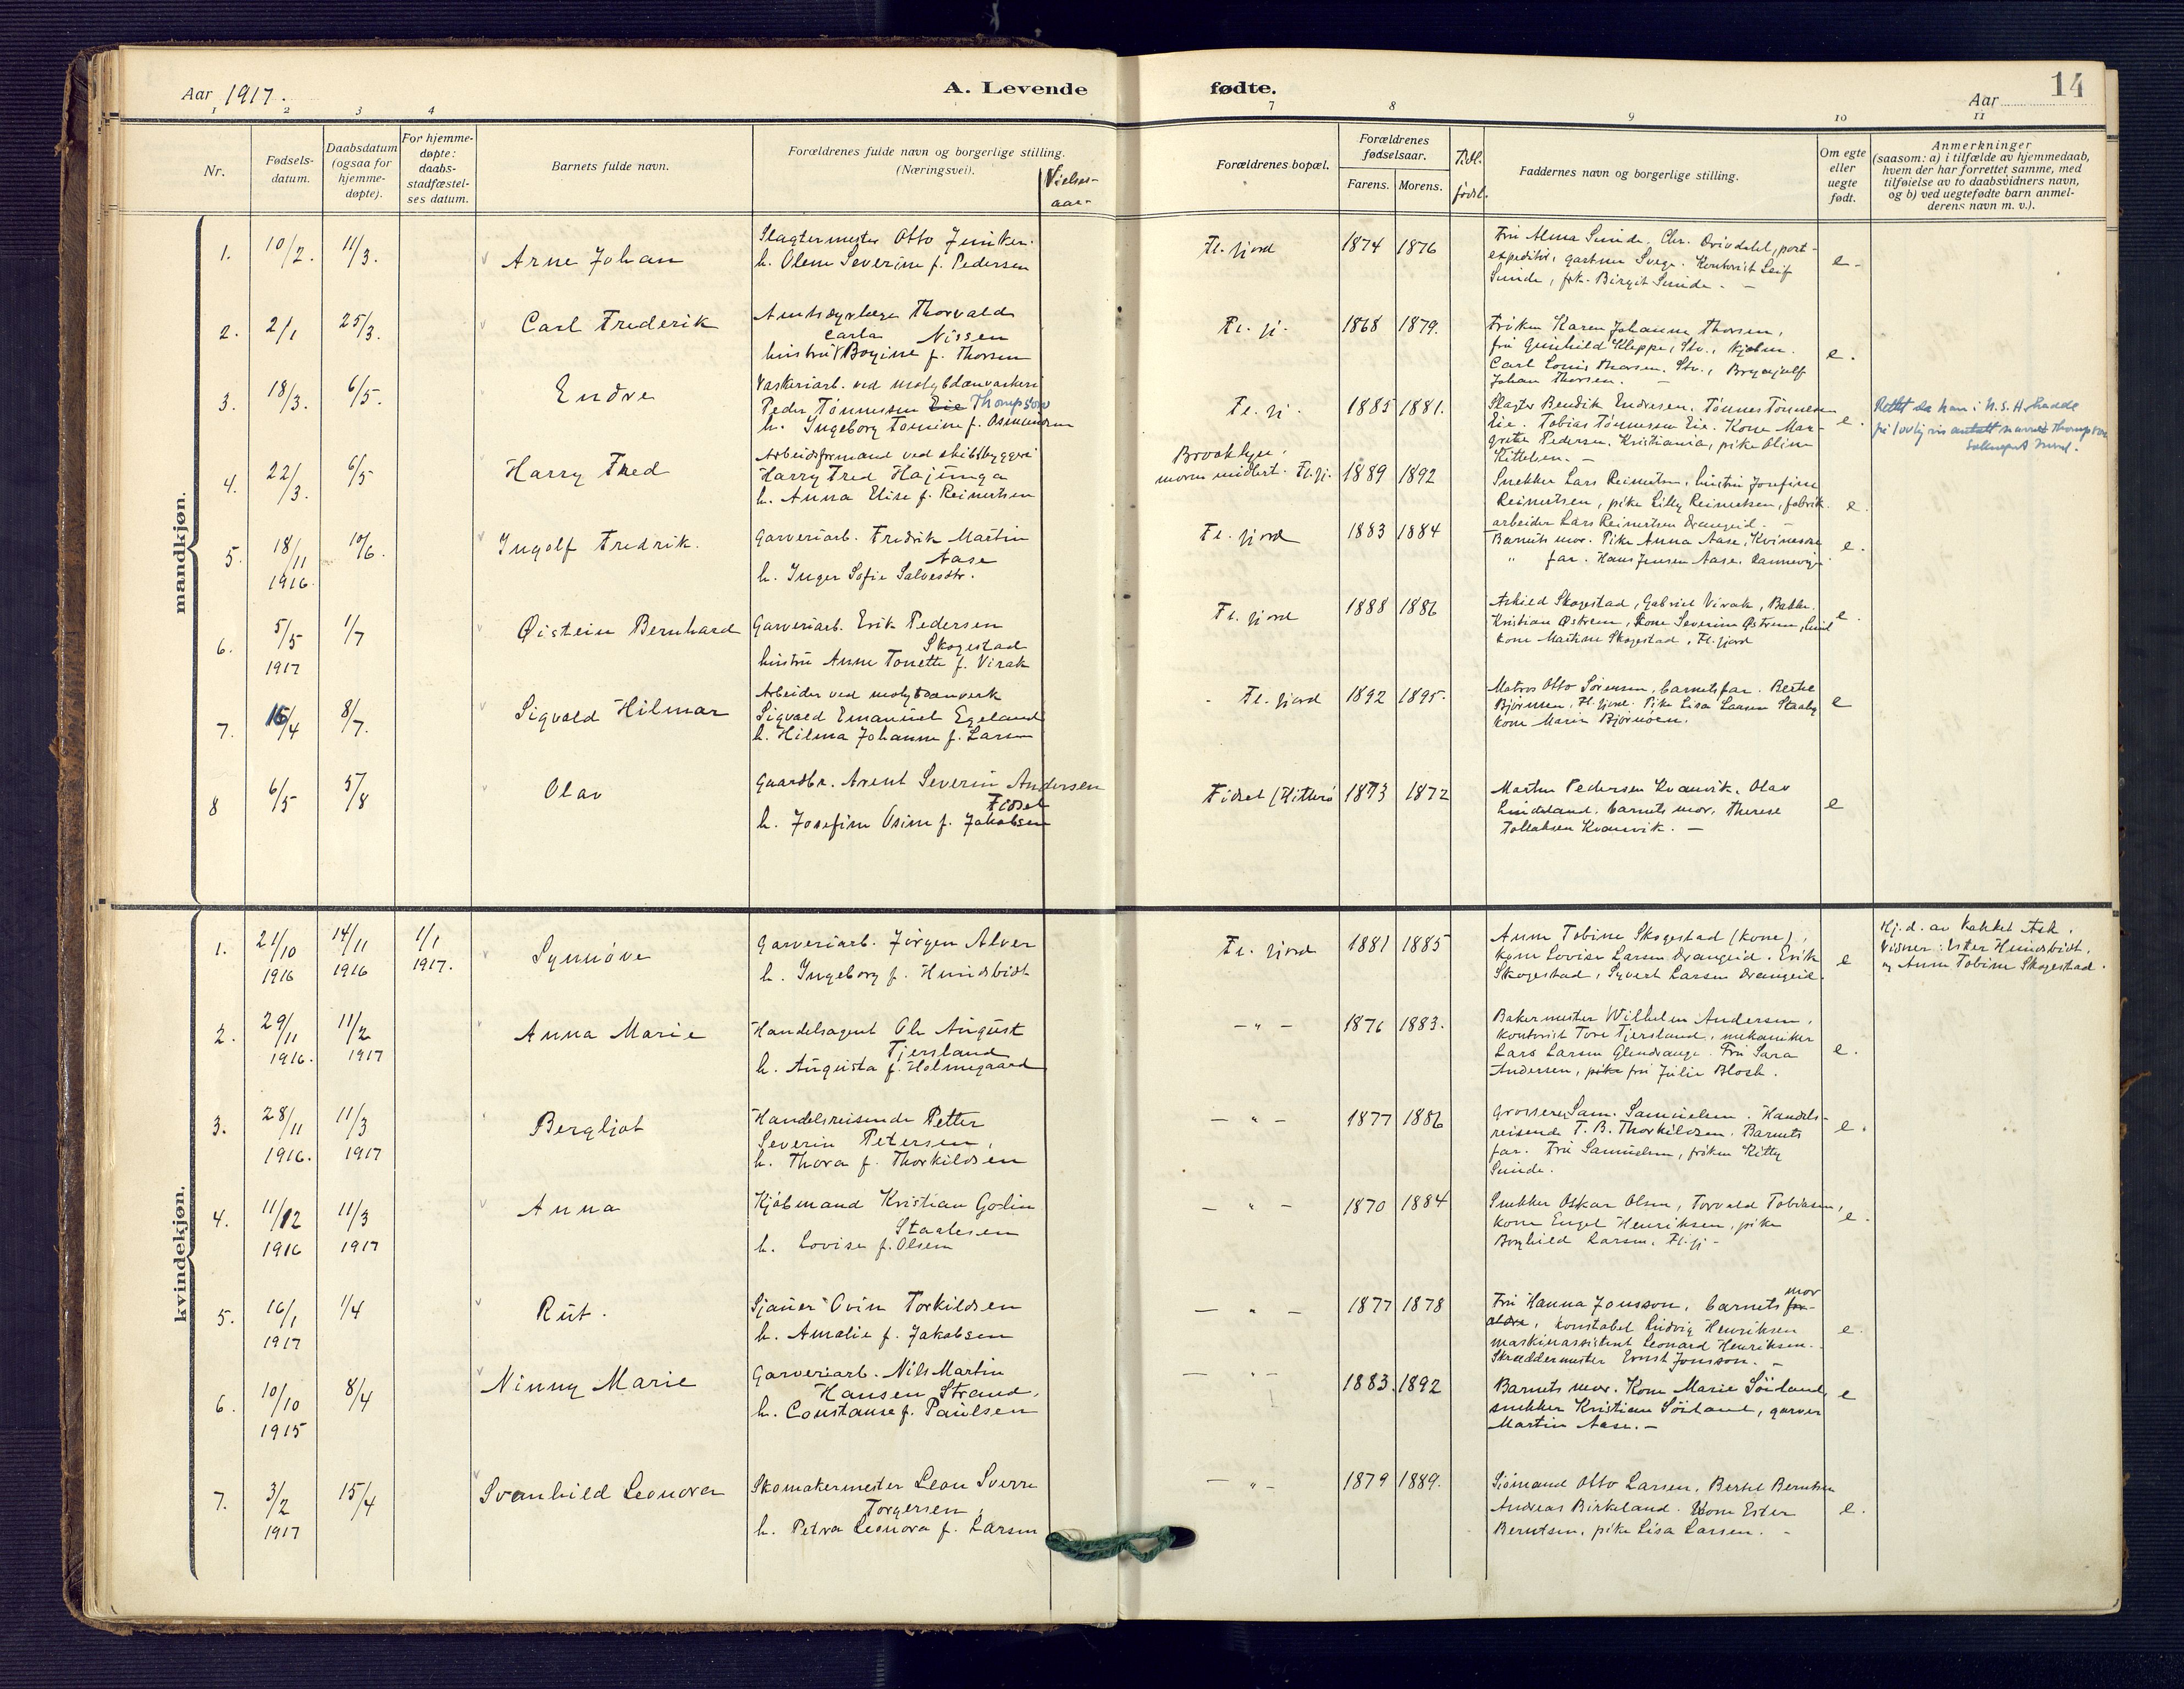 Aar 1917.
A. Levende fødte.
Aar
14
1 2 3 4 7 8 9 10 11
Nr.
Fødsels-
datum.
Daabsdatum
(ogsaa for
hjemme-
døpte).
For hjemme-
døpte:
daabs-
stadfæstel-
ses datum.
Barnets fulde navn.
Forældrenes fulde navn og borgerlige stilling.
(Næringsvei).
Vielses-
aar-
Forældrenes bopæl.
Forældrenes
fødselsaar.
Farens. Morens.
Tidl.
fødsl.
Faddernes navn og borgerlige stilling.
Om egte
eller
uegte
født.
Anmerkninger
(saasom: a) i tilfælde av hjemmedaab,
hvem der har forrettet samme, med
tilføielse av to daabsvidners navn,
og b) ved uegtefødte barn anmel-
derens navn m. v.).
mandkjøn.
1. 10/2. 11/3. Arne Johan
Slagtermester Otto Junker.
h. Olene Severine f. Pedersen
Fl. fjord 1874 1876
Fru Alma Sunde. Chr. Drivdahl, post-
expeditør, gartner Svege. Kontorist Leif
Sunde, frk. Birgit Sunde. -
e.
2. 2/1 25/3. Carl Frederik
Amtsdyrlæge Thorvald
Carla Nissen
hustru Borgine f. Thorsen
Fl. fj. 1868 1879.
Frøken Karen Johanne Thorsen,
fru Gunhild Kleppe, Stv.,
Carl Louis Thorsen, Stv., Brynjulf
Johan Thorsen. -
e.
3. 18/3. 6/5. Endre
Vaskeriarb. ved molybdænvaskeri
Peder Tønnessen Eie Thompson
h. Ingeborg Tomine f. Osmundsen
Fl. fj. 1885 1881.
Slagter Bendik Endresen, Tønnes Tønnesen
Eie. Tobias Tønnesen Eie. Kone Mar-
grete Pedersen, Kristiania, pike Oline
Kittelsen. -
e.
Rettet da han i U.S.A. hadde
på lovlig vis antatt navnet Thompson
4. 22/3. 6/5 Harry Fred
Arbeidsformand ved skibsbyggeri
Harry Fred Hajunga
h. Anna Elise f. Reinertsen
Brooklyn,
moren midlert. Fl.fj. 1889 1892
Snekker Lars Reinertsen, hustru Josefine
Reinertsen, pike Lilly Reinertsen, fabrik-
arbeider Lars Reinertsen Drangeid. -
e.
5. 18/11 1916. 10/6. Ingolf Fredrik.
Garveriarb. Fredrik Martin
Aase
h. Inger Sofie Salvesdtr.
Fl. fjord 1883 1884
Barnets mor. Pike Anna Aase, Kvinesdal
" far. Hans Jensen Aase.
e.
6. 5/5 1917 1/7 Øistein Bernhard
Garveriarb. Erik Pedersen
Skogestad
hustru Anne Tonette f. Virak
Fl. fjord 1888 1886
Askild Skogestad, Gabriel Virak, Bakke.
Kristian Østrem, kone Severine Østrem,
kone Martine Skogestad, Fl. fjord
e.
7. 15/4 8/7. Sigvald Hilmar
Arbeider ved molybdænverk
Sigvald Emanuel Egeland
h. Hilma Johanne f. Larsen
Fl. fjord 1892 1895.
Matros Otto Sørensen, barnets far. Berthe
Bjørnsen, Fl. fjord. Pike Lisa Larsen Staaby
kone Marie Bjørnøen.
e
8 6/5 5/8 Olav
Gaardbr. Arent Severin Andersen
Fidsel
h. Josefine Osine f. Jakobsen
Fidsel (Hitterø 1873 1872
Martin Pedersen Kvanvik, Olav
Lindeland, barnets mor, Therese
Tollaksen Kvanvik. -
e
kvindekjøn.
1. 21/10 1916 14/11 1916 1/1 1917. Synnøve
Garveriarb. Jørgen Alver
h. Ingeborg f. Hundsbidt
Fl. fjord 1881 1885
Anne Tobine Skogestad (kone),
kone Lovise Larsen Drangeid. Erik
Skogestad, Syvert Larsen Drangeid.
e
Hj.d. av Ask.
Vidner: Ester Hundsbidt,
og Anne Tobine Skogestad.
2. 29/11 1916. 11/2 1917 Anna Marie
Handelsagent Ole August
Tjersland
h. Augusta f. Holmegaard
- " - 1876 1883.
Bakermester Wilhelm Andersen,
kontorist Tore Tjersland, mekaniker
Lars Larsen Glendrange. Fru Sara
Andersen, pike fru Julie Blosk.
e.
3. 28/11 1916. 11/3 1917 Bergljot
Handelsreisende Petter
Severin Petersen,
h. Thora f. Thorkildsen
- " - 1877 1886
Grosserer Sam. Samuelsen. Handels-
reisende T. B. Thorkildsen. Barnets
far. Fru Samuelsen, frøken Kitty
Sunde.
e.
4. 11/12 1916 11/3 1917 Anna
Kjøbmand Kristian Godin
Staalesen
h. Lovise f. Olsen
- " - 1870 1884
Snekker Oskar Olsen, Torvald Tobiasen,
kone Engel Henriksen, pike
Borghild Larsen, Fl. fj. -
e.
5. 16/1 1917 1/4 Rut.
Sjauer Ovin Torkildsen
h. Amalie f. Jakobsen
- " - 1877 1878
Fru Hanna Jonsson, barnets for- mor
ældre, konstabel Ludvig Henriksen
maskinassistent Leonard Henriksen.
Skræddermester Ernst Jonsson. -
e.
6. 10/10 1915 8/4 Ninny Marie
Garveriarb. Nils Martin
Hansen Strand,
h. Constanse f. Paulsen
- " - 1883. 1892
Barnets mor. Kone Marie Söiland,
snekker Kristian Söiland, garver
Martin Aase. -
e
7. 3/2 1917 15/4 Svanhild Leonora
Skomakermester Leon Sverre
Torgersen,
h. Petra Leonora f. Larsen
- " - 1879 1889.
Sjömand Otto Larsen, Bertel Berntsen
Andreas Birkeland. Kone Ester
Berntsen, pike Lisa Larsen. -
e.